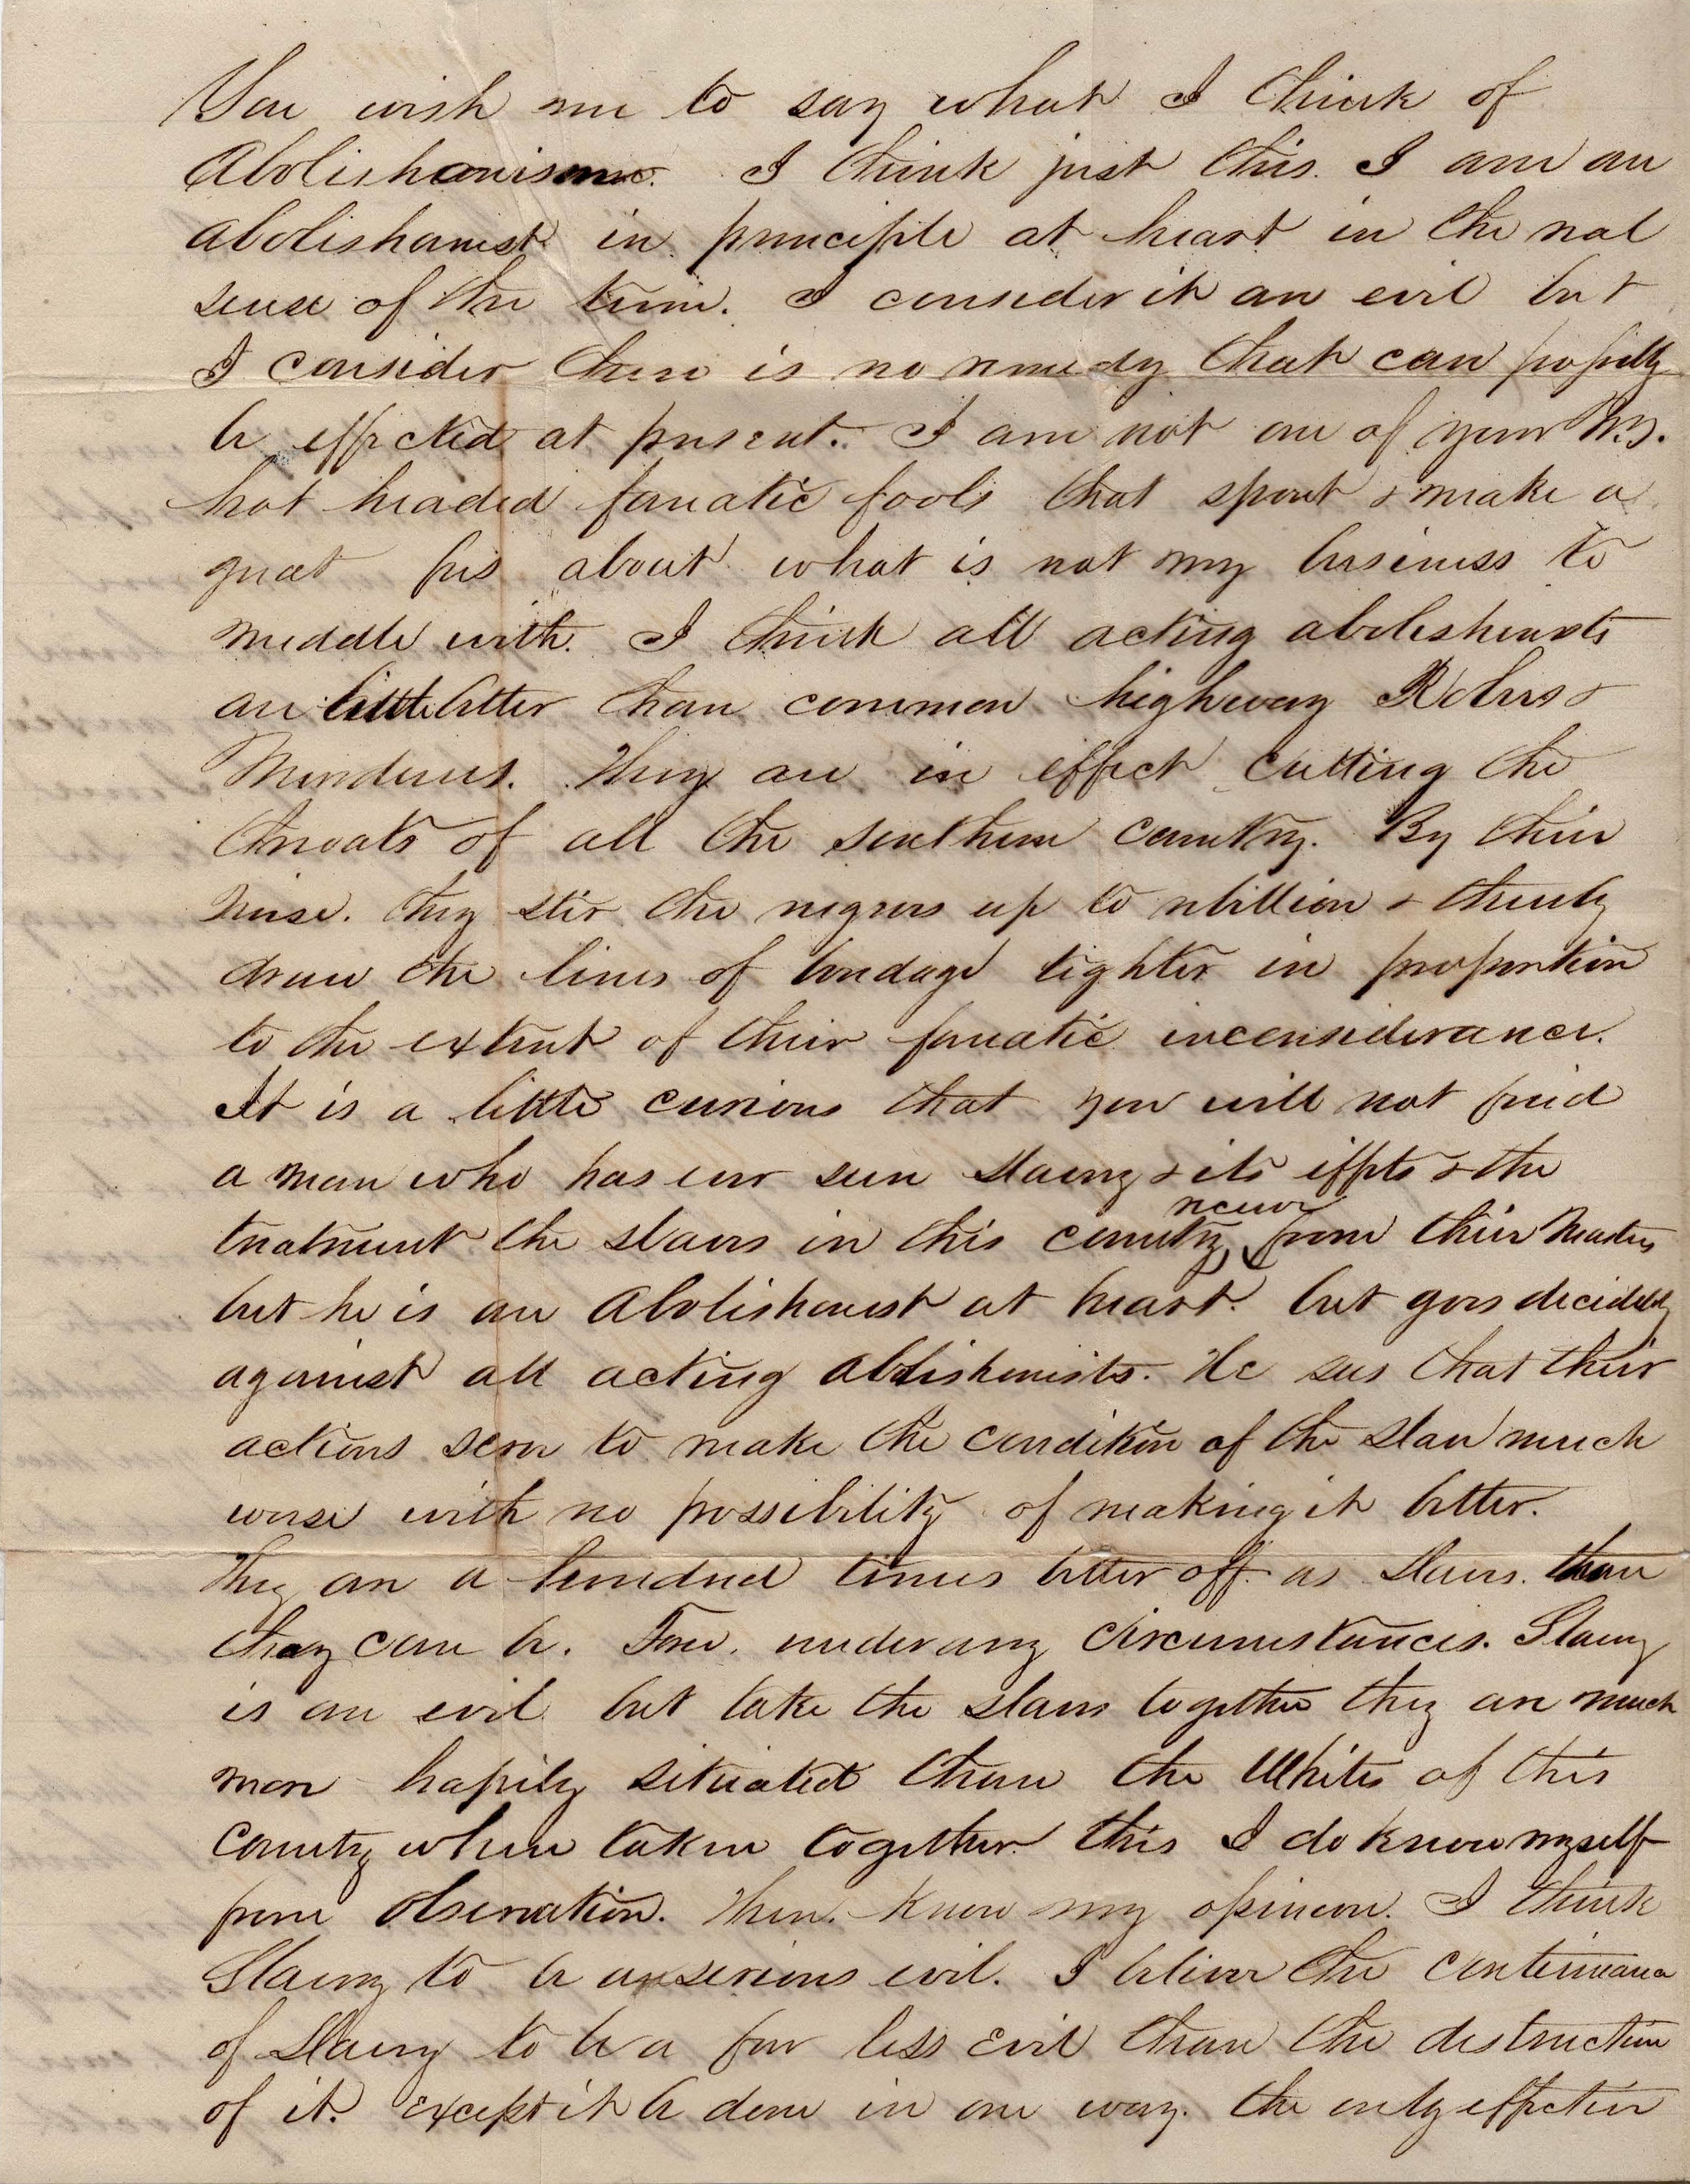 You wish me to say what I think of
Abolishonisme. I think just this. I am an
abolishonist in principle at heart in the real
sense of the term. I consider it an evil but
I consider there is no remedy that can possibly
be effected at present. I am not one of your
hot headed fanatic fools that spout & make a
great fus about what is not my business to
meddle with. I think all acting abolishonists
are little better than common highway Robers &
Murderers. They are in effect cutting the
throats of all the southern country. By their
noise. they stir the negroes up to rebillion & thereby
draw the lines of bondage tighter in proportion
to the extent of their fanatic inconsiderance.
It is a little curious that you will not find
a man who has ever seen slavery & its effcts & the
treatment the slaves in this country receive from their Masters
but he is an Abolishonist at heart. but goes decidedly
against all acting abolishonists. He sees that their
actions serve to make the condition of the slave much
worse with no possibility of making it better.
They are a hundred times better off as slaves. than
they can be. Free. under any circumstances. Slavery
is an evil but take the slaves together they are much
more hapily situated than the Whites of this
country when taken together. this I do know myself
from observation. Then. know my opinion. I think
Slavery to be a serious evil. I believe the continuance
of slavery to be a far less evil than the destruction
of it. except it be done in one way. the only effective